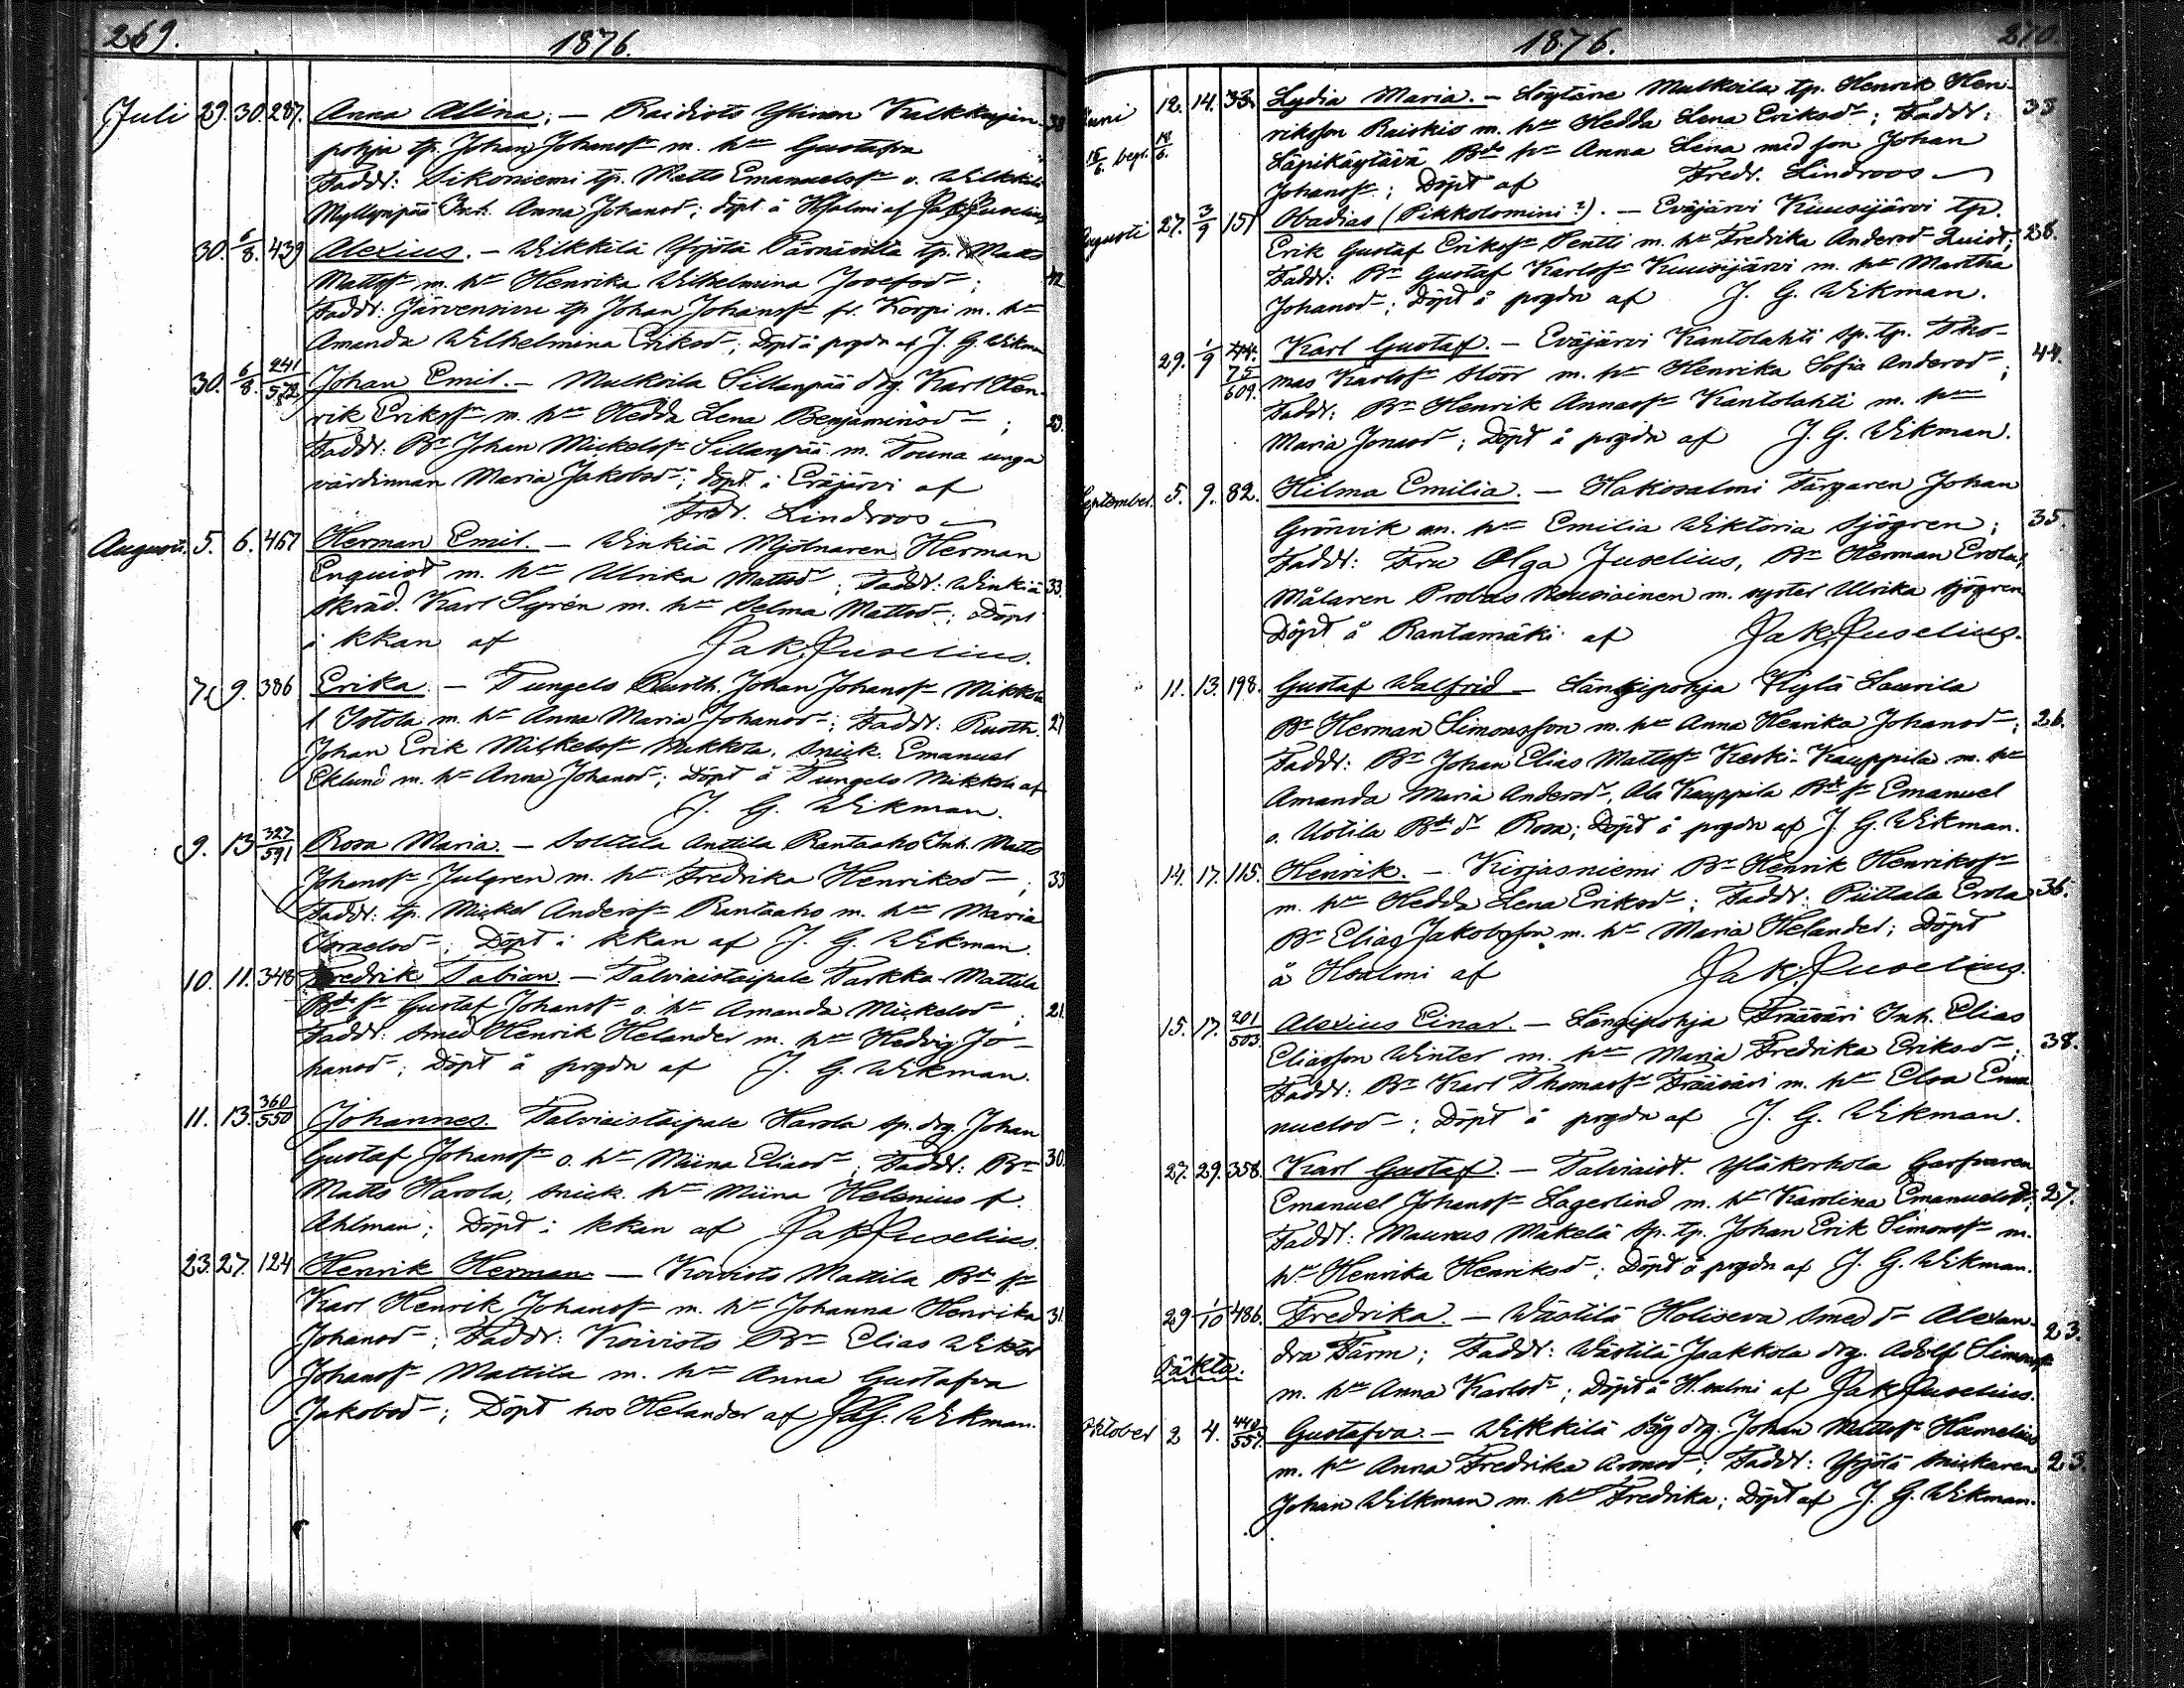 269.
1876.
Juli 29. 30. 287. Anna Alina. — Raidisto Ylinen Kalkkujän- 38
pohja tp. Johan Johansson m. hu Gustafva
Faddr: Sikoniemi tp. Matts Emanuelss. o. Wilkkilä
Myllynpää Inh. Anna Johansd; döpt å Hsalmi af Jak. Juselius
30. 6/8. 439 Alexius. — Wilkkilä Yrjölä Pärnäsillä tp. Matts
Mattss. m. hu Henrika Wilhelmina Josefsd; 42
Faddr: Järvensivu tp Johan Johanss. fr. Korpi m. hu
Amanda Wilhelmina Eriksd; Döpt å prgdn af J. G. Wikman
30. 6/8. 241/572 Johan Emil. — Mulkoila Sillanpää drg. Karl Hen-
rik Erikss. m. hu Hedda Lena Benjaminsd; 23.
Faddr: Br Johan Mickelss. Sillanpää m. Touna unga
värdinnan Maria Jakobsd; döpt i Eräjärvi af
Fredr. Lindroos
Augusti. 5. 6. 467 Herman Emil. — Winkiä Mjölnaren Herman
Enqvist m. hu Ulrika Mattsd; Faddr: Winkiä 33.
Skräd. Karl Syrén m. hu Selma Mattsd; Döpt
i kkan af Jak. Juselius.
7. 9. 386 Erika. — Tungelo Rusth. Johan Johanss. Mikkola
l. Istola m. hu Anna Maria Johansd; Faddr: Rusth. 27
Johan Erik Mickelss. Mikkola, Snick. Emanuel
Eklund m. hu Anna Johansd; Döpt å Tungelo Mikkola af
J. G. Wikman.
9. 13 327/591 Rosa Maria. — Solttila Anttila Rantaaho Inh. Matts
Johanss. Julgren m. hu Fredrika Henriksd; 33
Faddr: tp. Mickel Anderss. Rantaaho m. hu Maria
Israelsd; Döpt i kkan af J. G. Wikman.
10. 11. 348 Fredrik Fabian. — Talviaistaipale Tarkka-Mattila
Bde s. Gustaf Johanss. o. hu Amanda Mickelsd; 21.
Faddr: Smed Henrik Helander m. hu Hedvig Jo-
hansd; Döpt å prgdn af J. G. Wikman.
11. 13. 360/550 Johannes. Talviaistaipale Harola sp. drg. Johan
Gustaf Johanss. o. hu Miina Eliasd; Faddr: Br 30.
Matts Harola, Snick. hu Miina Helenius f.
Ahlman; Döpt i kkan af Jak. Juselius.
23. 27. 124 Henrik Herman — Koivisto Mattila Bde s.
Karl Henrik Johanss. m. hu Johanna Henrika 31.
Johansd; Faddr: Koivisto Br Elias Wiktor
Johanss. Mattila m. hu Anna Gustafva
Jakobsd; Döpt hos Helander af J. G. Wikman.
1876.
270.
Juni 12. 14. 33. Lydia Maria. — Löytäne Mulkoila tp. Henrik Hen-
riksson Raiskio m. hu Hedda Lena Eriksd; Faddr: 33
15/6. begr. 18/6. Läpikäytävä Bde hu Anna Lena med son Johan
Johanss.; Döpt af Fredr. Lindroos
Augusti 27. 3/9 151 Obadias (Pikkolomini?). — Eväjärvi Kuusijärvi tp.
Erik Gustaf Erikss. Pentti m. hu Fredrika Andersd Quist; 28.
Faddr: Br Gustaf Karlss. Kuusijärvi m. hu Martha
Johansd; Döpt å prgdn af J. G. Wikman.
29. 1/9 75/609. Karl Gustaf. — Eväjärvi Kantolahti sp. tp. Tho-
mas Karlss. Slöör m. hu Henrika Sofia Andersd; 44.
Faddr: Br Henrik Annass. Kantolahti m. hu
Maria Jonasd; Döpt å prgdn af J. G. Wikman.
September. 5. 9. 82. Hilma Emilia. — Hakosalmi Färgaren Johan
Grönvik m. hu Emilia Wiktoria Sjögren; 35.
Faddr: Fru Olga Juselius, Br Herman Erola,
Målaren Probus Rousiainen m. syster Ulrika Sjögren
Döpt å Rantamäki af Jak. Juselius.
11. 13. 198. Gustaf Walfrid — Längipohja Kylä Laurila
Br Herman Simonsson m. hu Anna Henrika Johansd; 26.
Faddr: Br Johan Elias Mattss. Keski-Kauppila m. hu
Amanda Maria Andersd, Ala Kauppila Bde s. Emanuel
o. Uotila Bde d. Rosa; Döpt å prgdn af J. G. Wikman.
14. 17. 115. Henrik. — Kirjasniemi Br Henrik Henrikss.
m. hu Hedda Lena Eriksd; Faddr: Piittala Erola 36.
Br Elias Jakobsson m. hu Maria Helander; Döpt
å Hsalmi af Jak. Juselius.
15. 17. 201/503. Alexius Einar. — Längipohja Frääväri Inh. Elias
Eliasson Winter m. hu Maria Fredrika Eriksd; 38.
Faddr: Br Karl Thomass. Frääväri m. hu Elsa Ema-
nuelsd; Döpt å prgdn af J. G. Wikman.
27. 29. 358. Karl Gustaf. — Talviaist. Yläkorhola Garfvaren
Emanuel Johanss. Lagerlind m. hu Karolina Emanuelsd; 27.
Faddr: Maunus Mäkelä sp. tp. Johan Erik Simonss. m.
hu Henrika Henriksd; Döpt å prgdn af J. G. Wikman.
29 1/10 486. Fredrika. — Wästilä Holiseva Smed d. Alexan- 23.
Oäkta. dra Färm; Faddr: Wästilä Jaakkola drg. Adolf Simonss.
m. hu Anna Karlsd; Döpt å H.salmi af Jak. Juselius.
Oktober 2 4. 440/557. Gustafva. — Wilkkilä Såg drg. Johan Mattss. Hamelius
m. hu Anna Fredrika Aronsd; Faddr: Yrjölä Snickaren 23.
Johan Wilkman m. hu Fredrika; Döpt af J. G. Wikman.